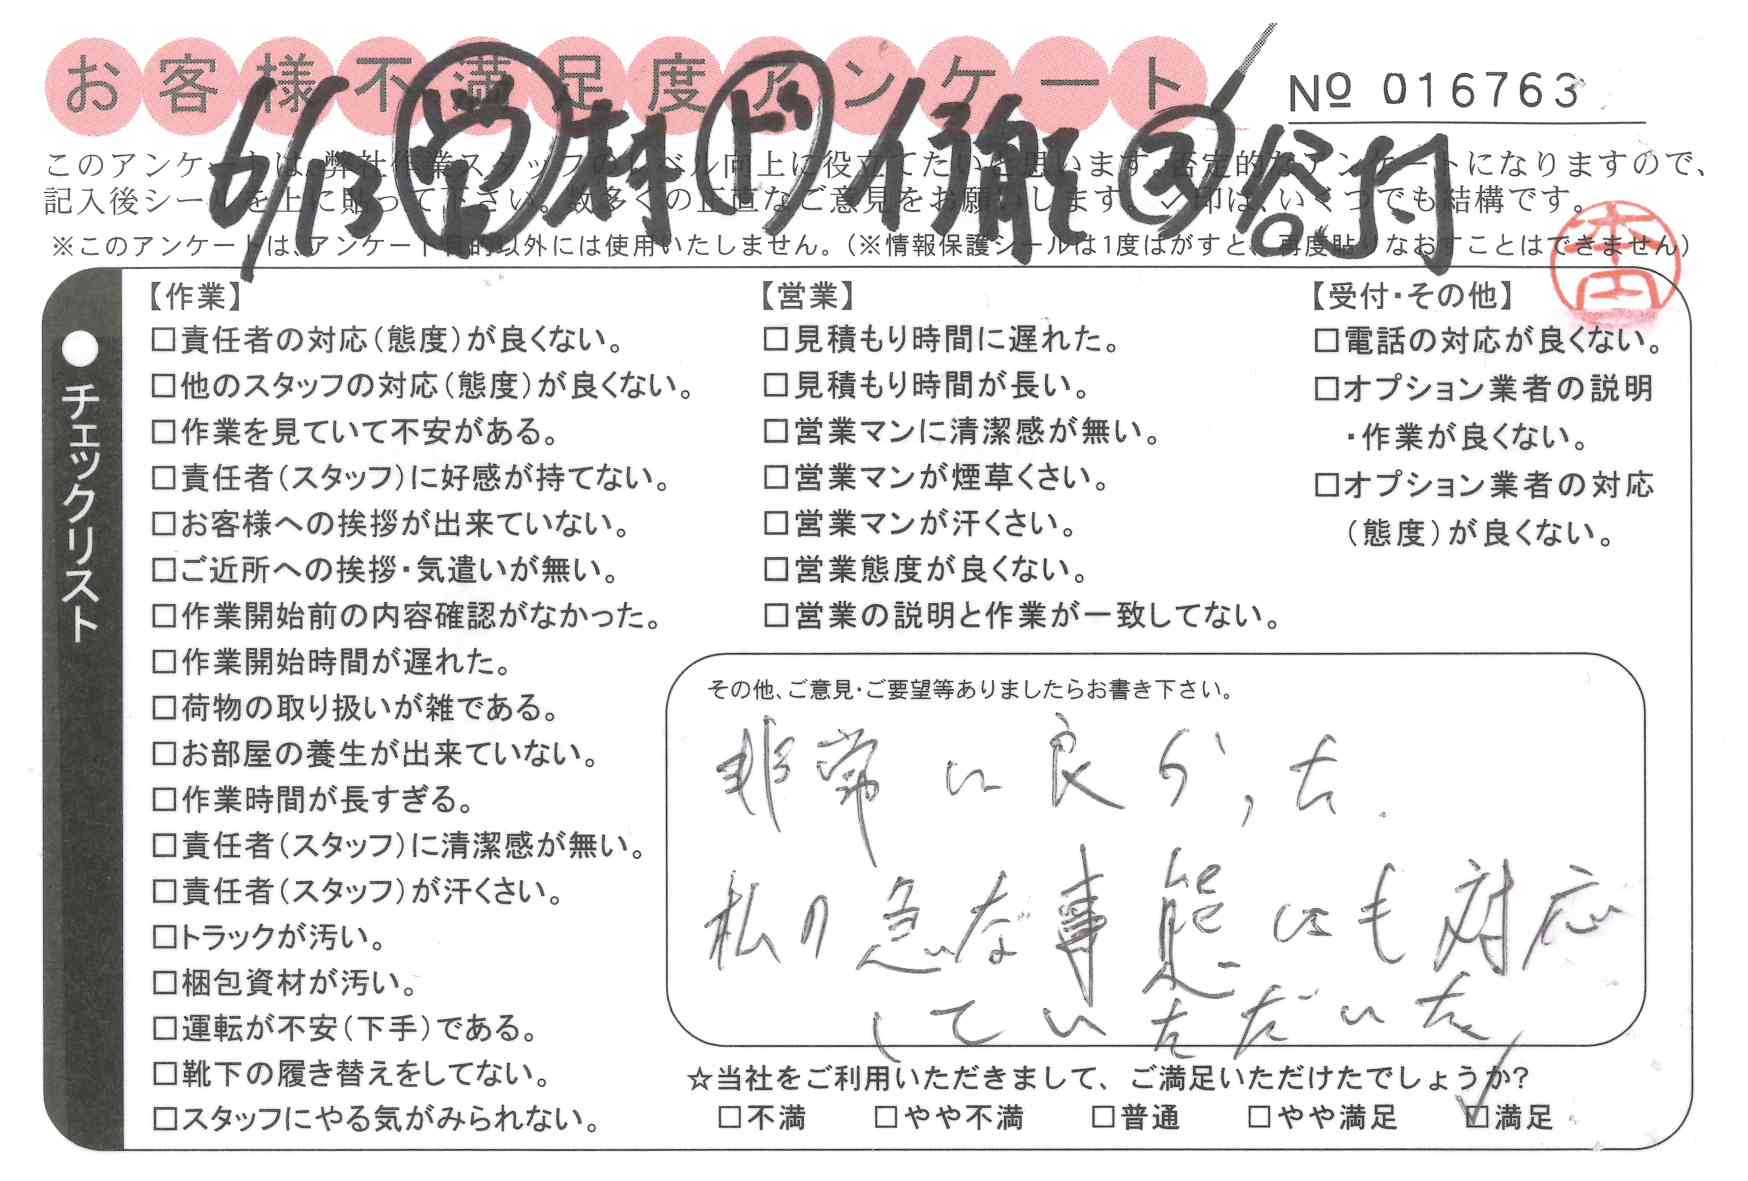 お客様不満足度アンケート
№ 016763
6/13 営 村 ド 伊藤 ヨ 谷村
このアンケートは、弊社作業スタッフのレベル向上に役立てたいと思います。否定的なアンケートになりますので、
記入後シールを上に貼って下さい。数多くの正直なご意見をお願いします。✓印は、いくつでも結構です。
※このアンケートは、アンケート目的以外には使用いたしません。(※情報保護シールは1度はがすと、再度貼りなおすことはできません)
チェックリスト
【作業】
□責任者の対応(態度)が良くない。
□他のスタッフの対応(態度)が良くない。
□作業を見ていて不安がある。
□責任者(スタッフ)に好感が持てない。
□お客様への挨拶が出来ていない。
□ご近所への挨拶・気遣いが無い。
□作業開始前の内容確認がなかった。
□作業開始時間が遅れた。
□荷物の取り扱いが雑である。
□お部屋の養生が出来ていない。
□作業時間が長すぎる。
□責任者(スタッフ)に清潔感が無い。
□責任者(スタッフ)が汗くさい。
□トラックが汚い。
□梱包資材が汚い。
□運転が不安(下手)である。
□靴下の履き替えをしてない。
□スタッフにやる気がみられない。
【営業】
□見積もり時間に遅れた。
□見積もり時間が長い。
□営業マンに清潔感が無い。
□営業マンが煙草くさい。
□営業マンが汗くさい。
□営業態度が良くない。
□営業の説明と作業が一致してない。
【受付・その他】
□電話の対応が良くない。
□オプション業者の説明
・作業が良くない。
□オプション業者の対応
(態度)が良くない。
その他、ご意見・ご要望等ありましたらお書き下さい。
非常に良かった.
私の急な事態にも対応
していただいた
☆当社をご利用いただきまして、ご満足いただけたでしょうか?
□不満 □やや不満 □普通 □やや満足 ☑満足